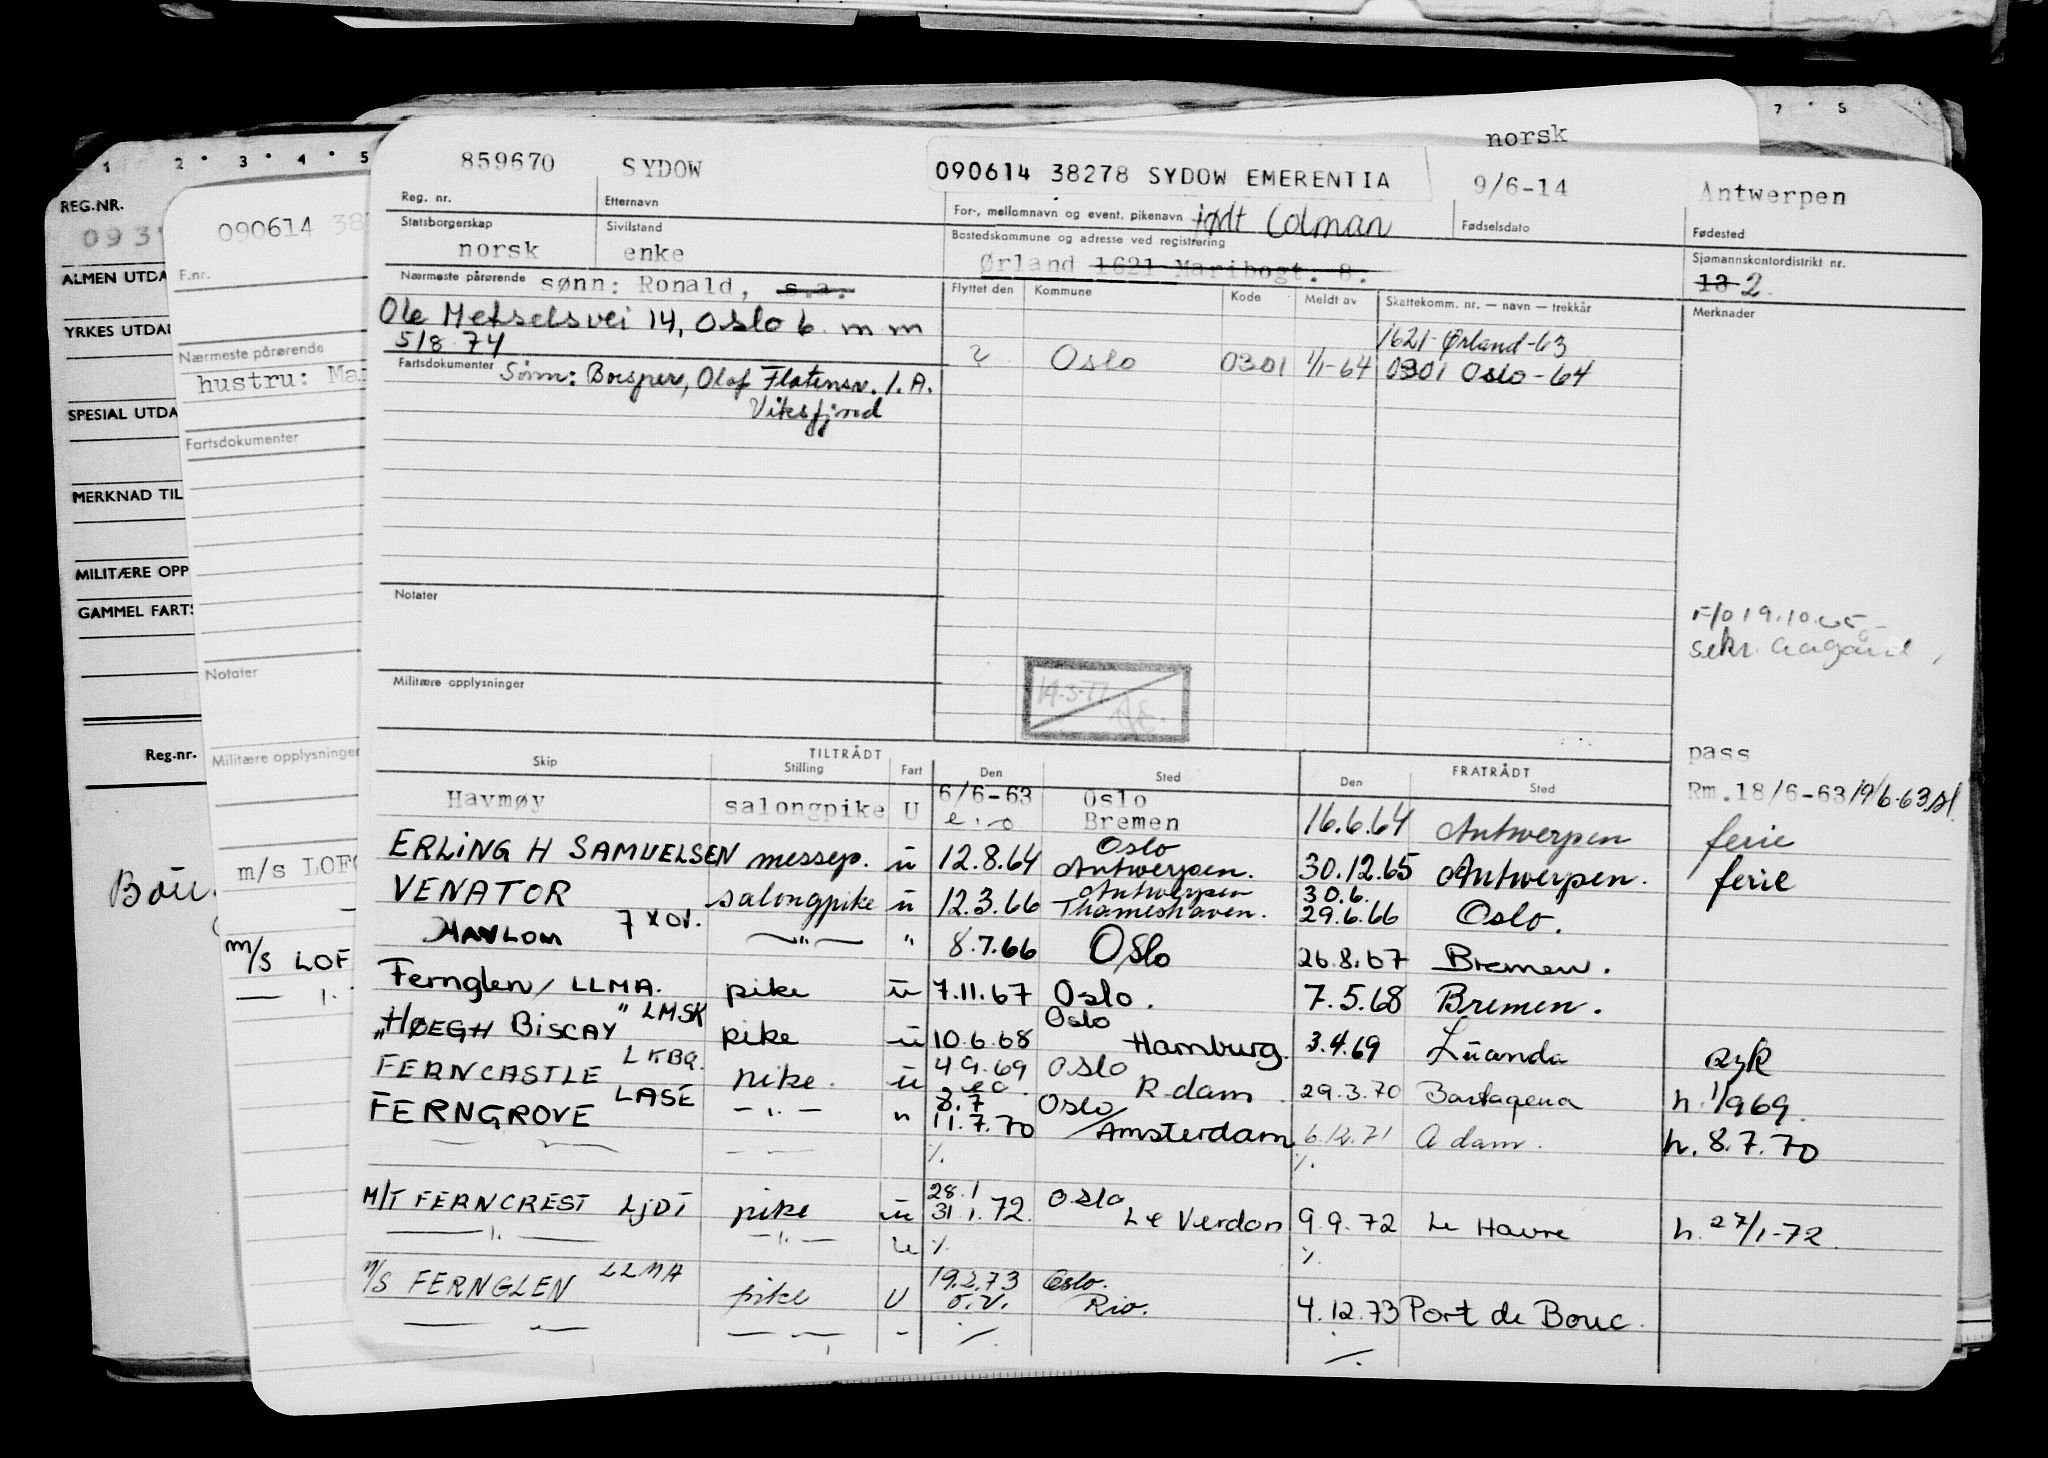 7 • 5
1 2 • 3 • 4 • 5
REG.NR.
ALMEN UTDA
YRKES UTDA
SPESIAL UTDA
MERKNAD TIL
MILITÆRE OPP
GAMMEL FARTS
Reg.nr.
090614 38
F.nr.
Nærmeste pårørende
hustru: Ma
Fartsdokumenter
Notater
Militære opplysninger
m/s LOF
m/s LOF
norsk
859670 SYDOW 090614 38278 SYDOW EMERENTIA 9/6-14 Antwerpen
Reg. nr. Etternavn For-, mellomnavn og event. pikenavn født Colman Fødselsdato Fødested
Statsborgerskap Sivilstand Bostedskommune og adresse ved registrering Sjømannskontordistrikt nr.
norsk enke Ørland 1621 Maribogt. 8. 13 2
Nærmeste pårørende sønn: Ronald, s.a. Flyttet den Kommune Kode Meldt av Skattekomm. nr. — navn — trekkår Merknader
Ole Messelsvei 14, Oslo 6. m m
5/8 74 1621-Ørland-63
? Oslo 0301 1/1-64 0301 Oslo-64
Fartsdokumenter Sønn: Olaf Flatensv. 1.A.
Viksfjord
Notater
F/o 19.10.65
sekr. Aagård
Militære opplysninger 14.3.77
pass
TILTRÅDT FRATRÅDT
Skip Stilling Fart Den Sted Den Sted
Rm.18/6-63 19/6-63
Havmøy salongpike U 6/6-63 Oslo
e.o Bremen 16.6.64 Antwerpen ferie
ERLING H SAMUELSEN messep. u 12.8.64 Oslo
Antwerpen. 30.12.65 Antwerpen. ferie
VENATOR salongpike u 12.3.66 Antwerpen 30.6.
Thameshaven. 29.6.66 Oslo.
HAVLOM 7 x ov. —"— " 8.7.66 Oslo 26.8.67 Bremen.
Fernglen / LLMA. pike u 7.11.67 Oslo. 7.5.68 Bremen.
"HØEGH BISCAY" LMSK pike u 10.6.68 Oslo
Hamburg. 3.4.69 Luanda
FERNCASTLE LKBQ. pike. u 4.9.69 Oslo
eo R-dam 29.3.70 h. 1/969.
FERNGROVE LASE —"— " 8.7 Oslo
11.7.70 /Amsterdam 6.12.71 Adam. h. 8.7.70
— — — — ⁒ ⁒
M/T FERNCREST LJDT pike u 28.1 Oslo
31.1.72. Le Verdon 9.9.72 Le Havre h. 27/1-72.
—"— —"— u ⁒ ⁒
M/S FERNGLEN LLMA pike U 19.2.73 Oslo.
o.v. Rio. 4.12.73 Port de Bouc.
— — — — - ⁒ ⁒